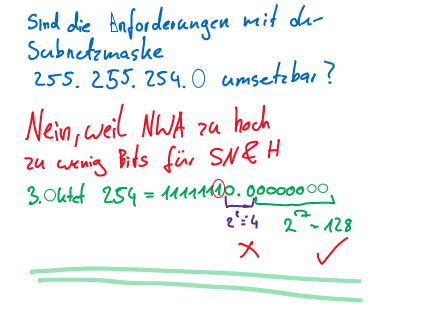 Sind die Anforderungen mit der
Subnetzmaske
255. 255. 254. 0 umsetzbar?
Nein, weil NWA zu hoch
zu wenig Bits für SN & H
3. Oktet 254 = 11111110.00000000
2² = 4 2⁷ ~ 128